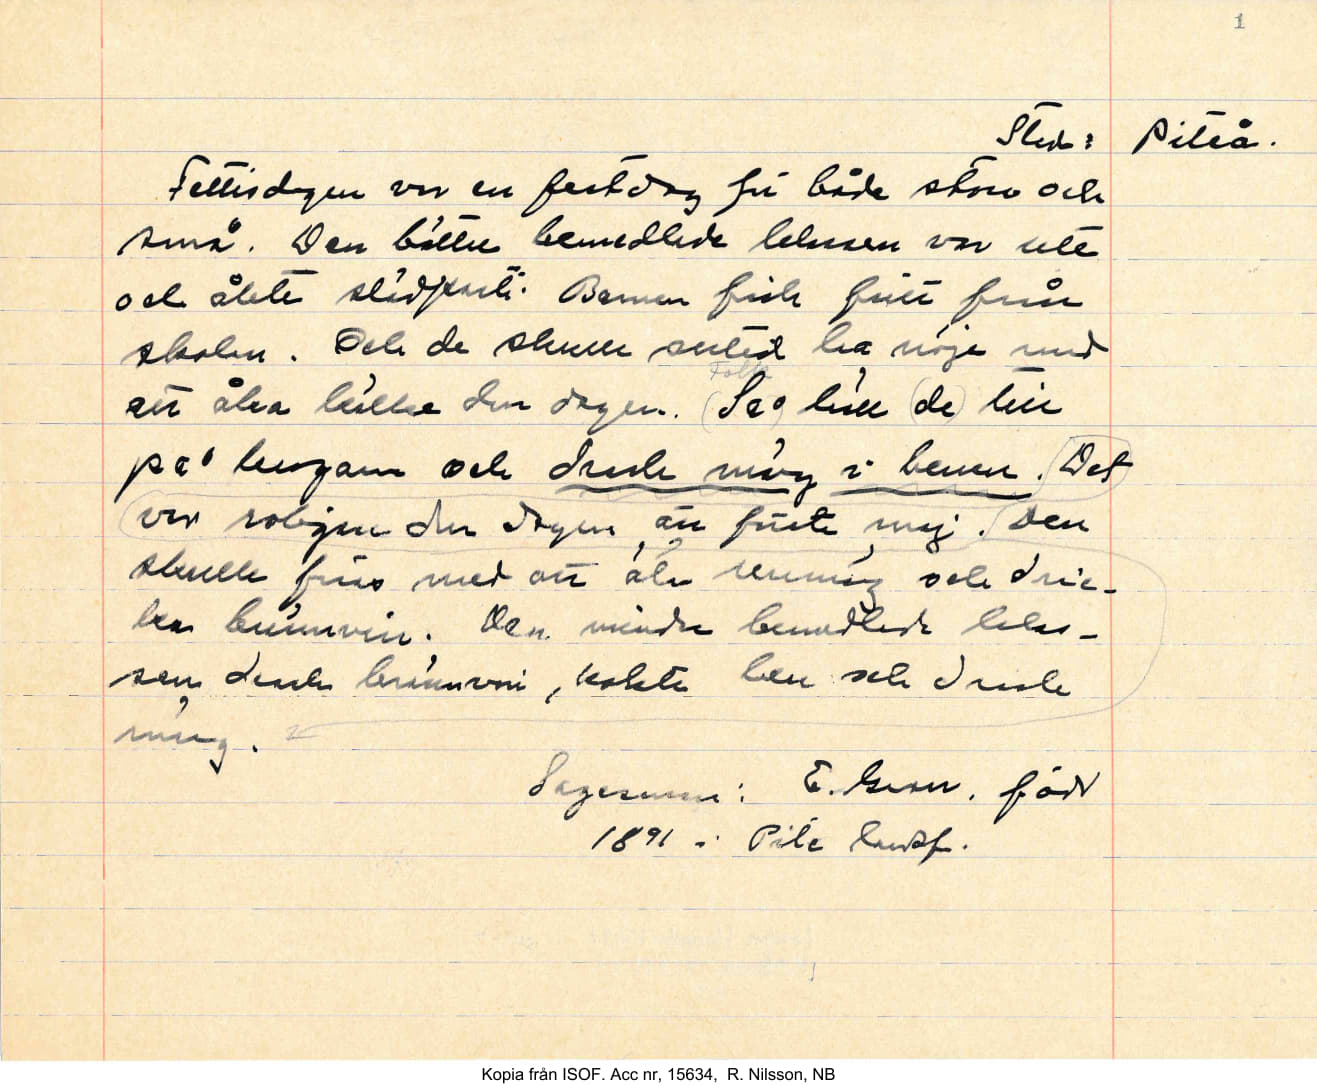 1
Sted: Piteå.
Fettisdagen var en festdag för både stora och
små. Den bättre bemedlede klassen var ute
och åkte slädparti. Barnen fick fritt från
skolan. Och de skulle alltid ha nöje med
Folk
att åka kälke den dagen. (Sen) höll (de) till
på krogarna och drack märg i benen. (Det
var roligare den dagen än första maj.) Den
skulle firas med att äta renmärg och dric-
ka brännvin. Den mindre bemedlede klas-
sen drack brännvin, kokte ben och drack
märg.
Sagesman: E. född
1891 i Pite landsf.
Kopia från ISOF. Acc nr, 15634, R. Nilsson, NB